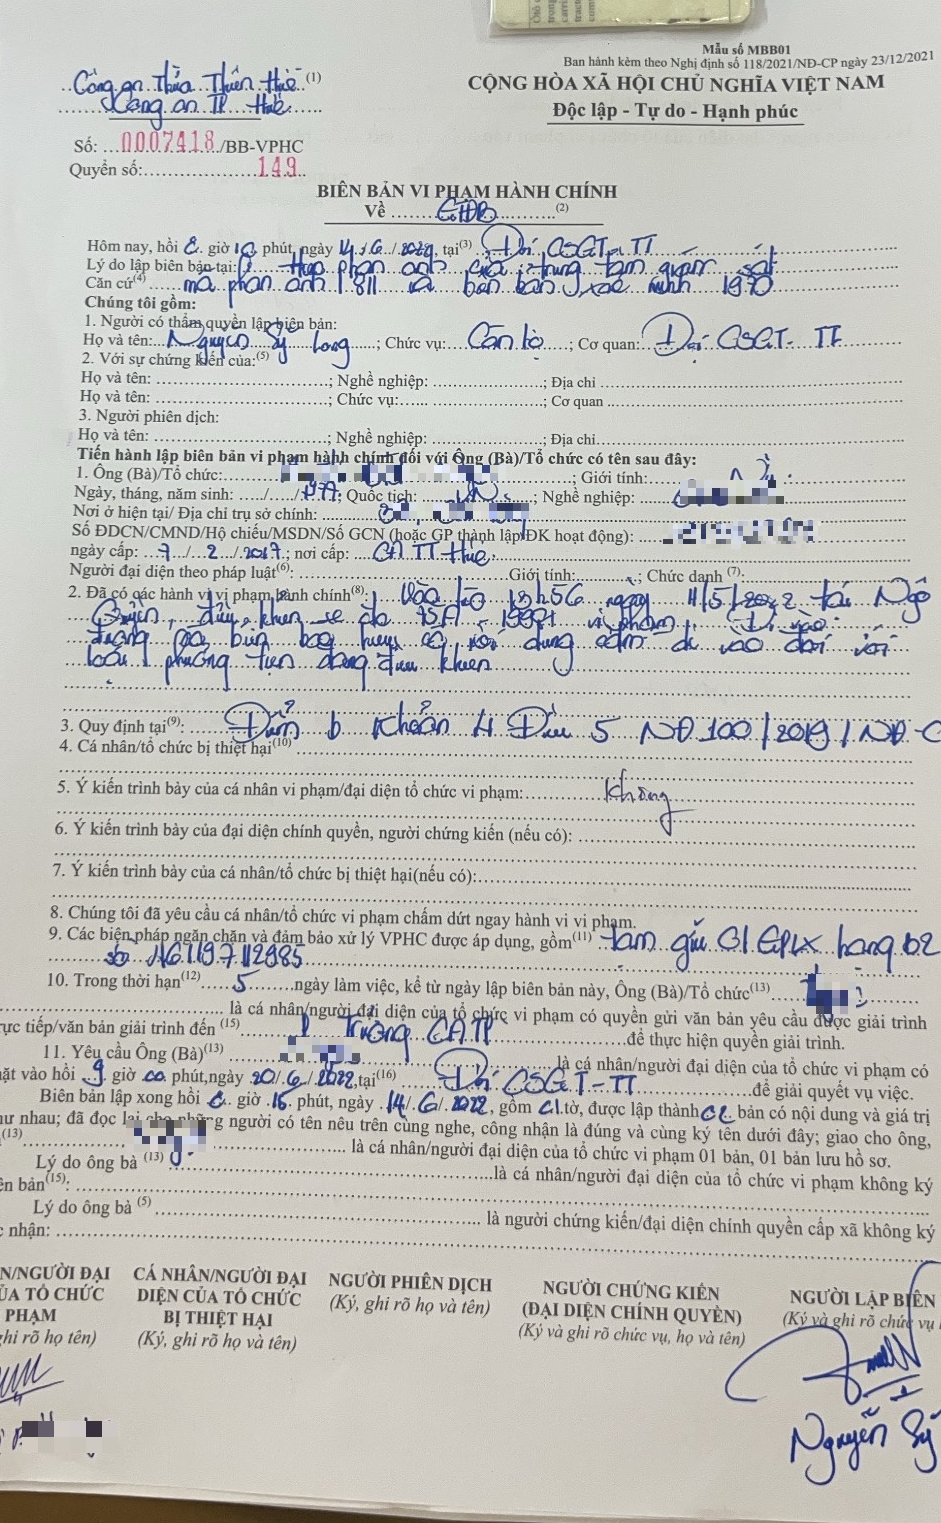 Mẫu số MBB01
Ban hành kèm theo Nghị định số 118/2021/NĐ-CP ngày 23/12/2021
Công an Thừa Thiên Huế (1)
Công an TP Huế
CỘNG HÒA XÃ HỘI CHỦ NGHĨA VIỆT NAM
Độc lập - Tự do - Hạnh phúc
Số: 0007418/BB-VPHC
Quyển số: 149
BIÊN BẢN VI PHẠM HÀNH CHÍNH
Về GTĐB (2)
Hôm nay, hồi 8 giờ 10 phút, ngày 14/6/2022, tại(3) Đội CSGT-TT
Lý do lập biên bản tại: phản ánh của trung tâm giám sát
Căn cứ(4) mã phản ánh 1811 và biên bản xác minh 1970
Chúng tôi gồm:
1. Người có thẩm quyền lập biên bản:
Họ và tên: Nguyễn Sỹ Long; Chức vụ: Cán bộ; Cơ quan: Đội CSGT-TT
2. Với sự chứng kiến của:(5)
Họ và tên: ; Nghề nghiệp: ; Địa chỉ
Họ và tên: ; Chức vụ: ; Cơ quan
3. Người phiên dịch:
Họ và tên: ; Nghề nghiệp: ; Địa chỉ
Tiến hành lập biên bản vi phạm hành chính đối với Ông (Bà)/Tổ chức có tên sau đây:
1. Ông (Bà)/Tổ chức: ; Giới tính:
Ngày, tháng, năm sinh: / /1977; Quốc tịch: VN; Nghề nghiệp:
Nơi ở hiện tại/ Địa chỉ trụ sở chính:
Số ĐDCN/CMND/Hộ chiếu/MSDN/Số GCN (hoặc GP thành lập/ĐK hoạt động):
ngày cấp: 7/2/2017; nơi cấp: CA TT Huế
Người đại diện theo pháp luật(6): Giới tính: ; Chức danh (7):
2. Đã có các hành vi vi phạm hành chính(8): Vào lúc 18h56 ngày 11/5/2022 tại Ngô
Quyền, điều khiển xe ôtô 75A - vi phạm: Đi vào
đường có biển báo hiệu có nội dung cấm đi vào đối với
loại phương tiện đang điều khiển
3. Quy định tại(9): Điểm b Khoản 4 Điều 5 NĐ 100/2019/NĐ-C
4. Cá nhân/tổ chức bị thiệt hại(10)
5. Ý kiến trình bày của cá nhân vi phạm/đại diện tổ chức vi phạm: Không
6. Ý kiến trình bày của đại diện chính quyền, người chứng kiến (nếu có):
7. Ý kiến trình bày của cá nhân/tổ chức bị thiệt hại(nếu có):
8. Chúng tôi đã yêu cầu cá nhân/tổ chức vi phạm chấm dứt ngay hành vi vi phạm.
9. Các biện pháp ngăn chặn và đảm bảo xử lý VPHC được áp dụng, gồm(11) tạm giữ 01 GPLX hạng b2
số
10. Trong thời hạn(12) 5 ngày làm việc, kể từ ngày lập biên bản này, Ông (Bà)/Tổ chức(13)
là cá nhân/người đại diện của tổ chức vi phạm có quyền gửi văn bản yêu cầu được giải trình
rực tiếp/văn bản giải trình đến (15) Trưởng CATP để thực hiện quyền giải trình.
11. Yêu cầu Ông (Bà)(13) là cá nhân/người đại diện của tổ chức vi phạm có
nặt vào hồi 9 giờ 00 phút, ngày 20/6/2022, tại(16) Đội CSGT-TT để giải quyết vụ việc.
Biên bản lập xong hồi 8 giờ 15 phút, ngày 14/6/2022, gồm 01 tờ, được lập thành 02 bản có nội dung và giá trị
hư nhau; đã đọc lại cho những người có tên nêu trên cùng nghe, công nhận là đúng và cùng ký tên dưới đây; giao cho ông,
(13) là cá nhân/người đại diện của tổ chức vi phạm 01 bản, 01 bản lưu hồ sơ.
Lý do ông bà (13) là cá nhân/người đại diện của tổ chức vi phạm không ký
ên bản(15):
Lý do ông bà (5) là người chứng kiến/đại diện chính quyền cấp xã không ký
c nhận:
N/NGƯỜI ĐẠI CÁ NHÂN/NGƯỜI ĐẠI NGƯỜI PHIÊN DỊCH NGƯỜI CHỨNG KIẾN NGƯỜI LẬP BIÊN
ỦA TỔ CHỨC DIỆN CỦA TỔ CHỨC (Ký, ghi rõ họ và tên) (ĐẠI DIỆN CHÍNH QUYỀN) (Ký và ghi rõ chức vụ
PHẠM BỊ THIỆT HẠI (Ký và ghi rõ chức vụ, họ và tên)
ghi rõ họ tên) (Ký, ghi rõ họ và tên)
Nguyễn Sỹ